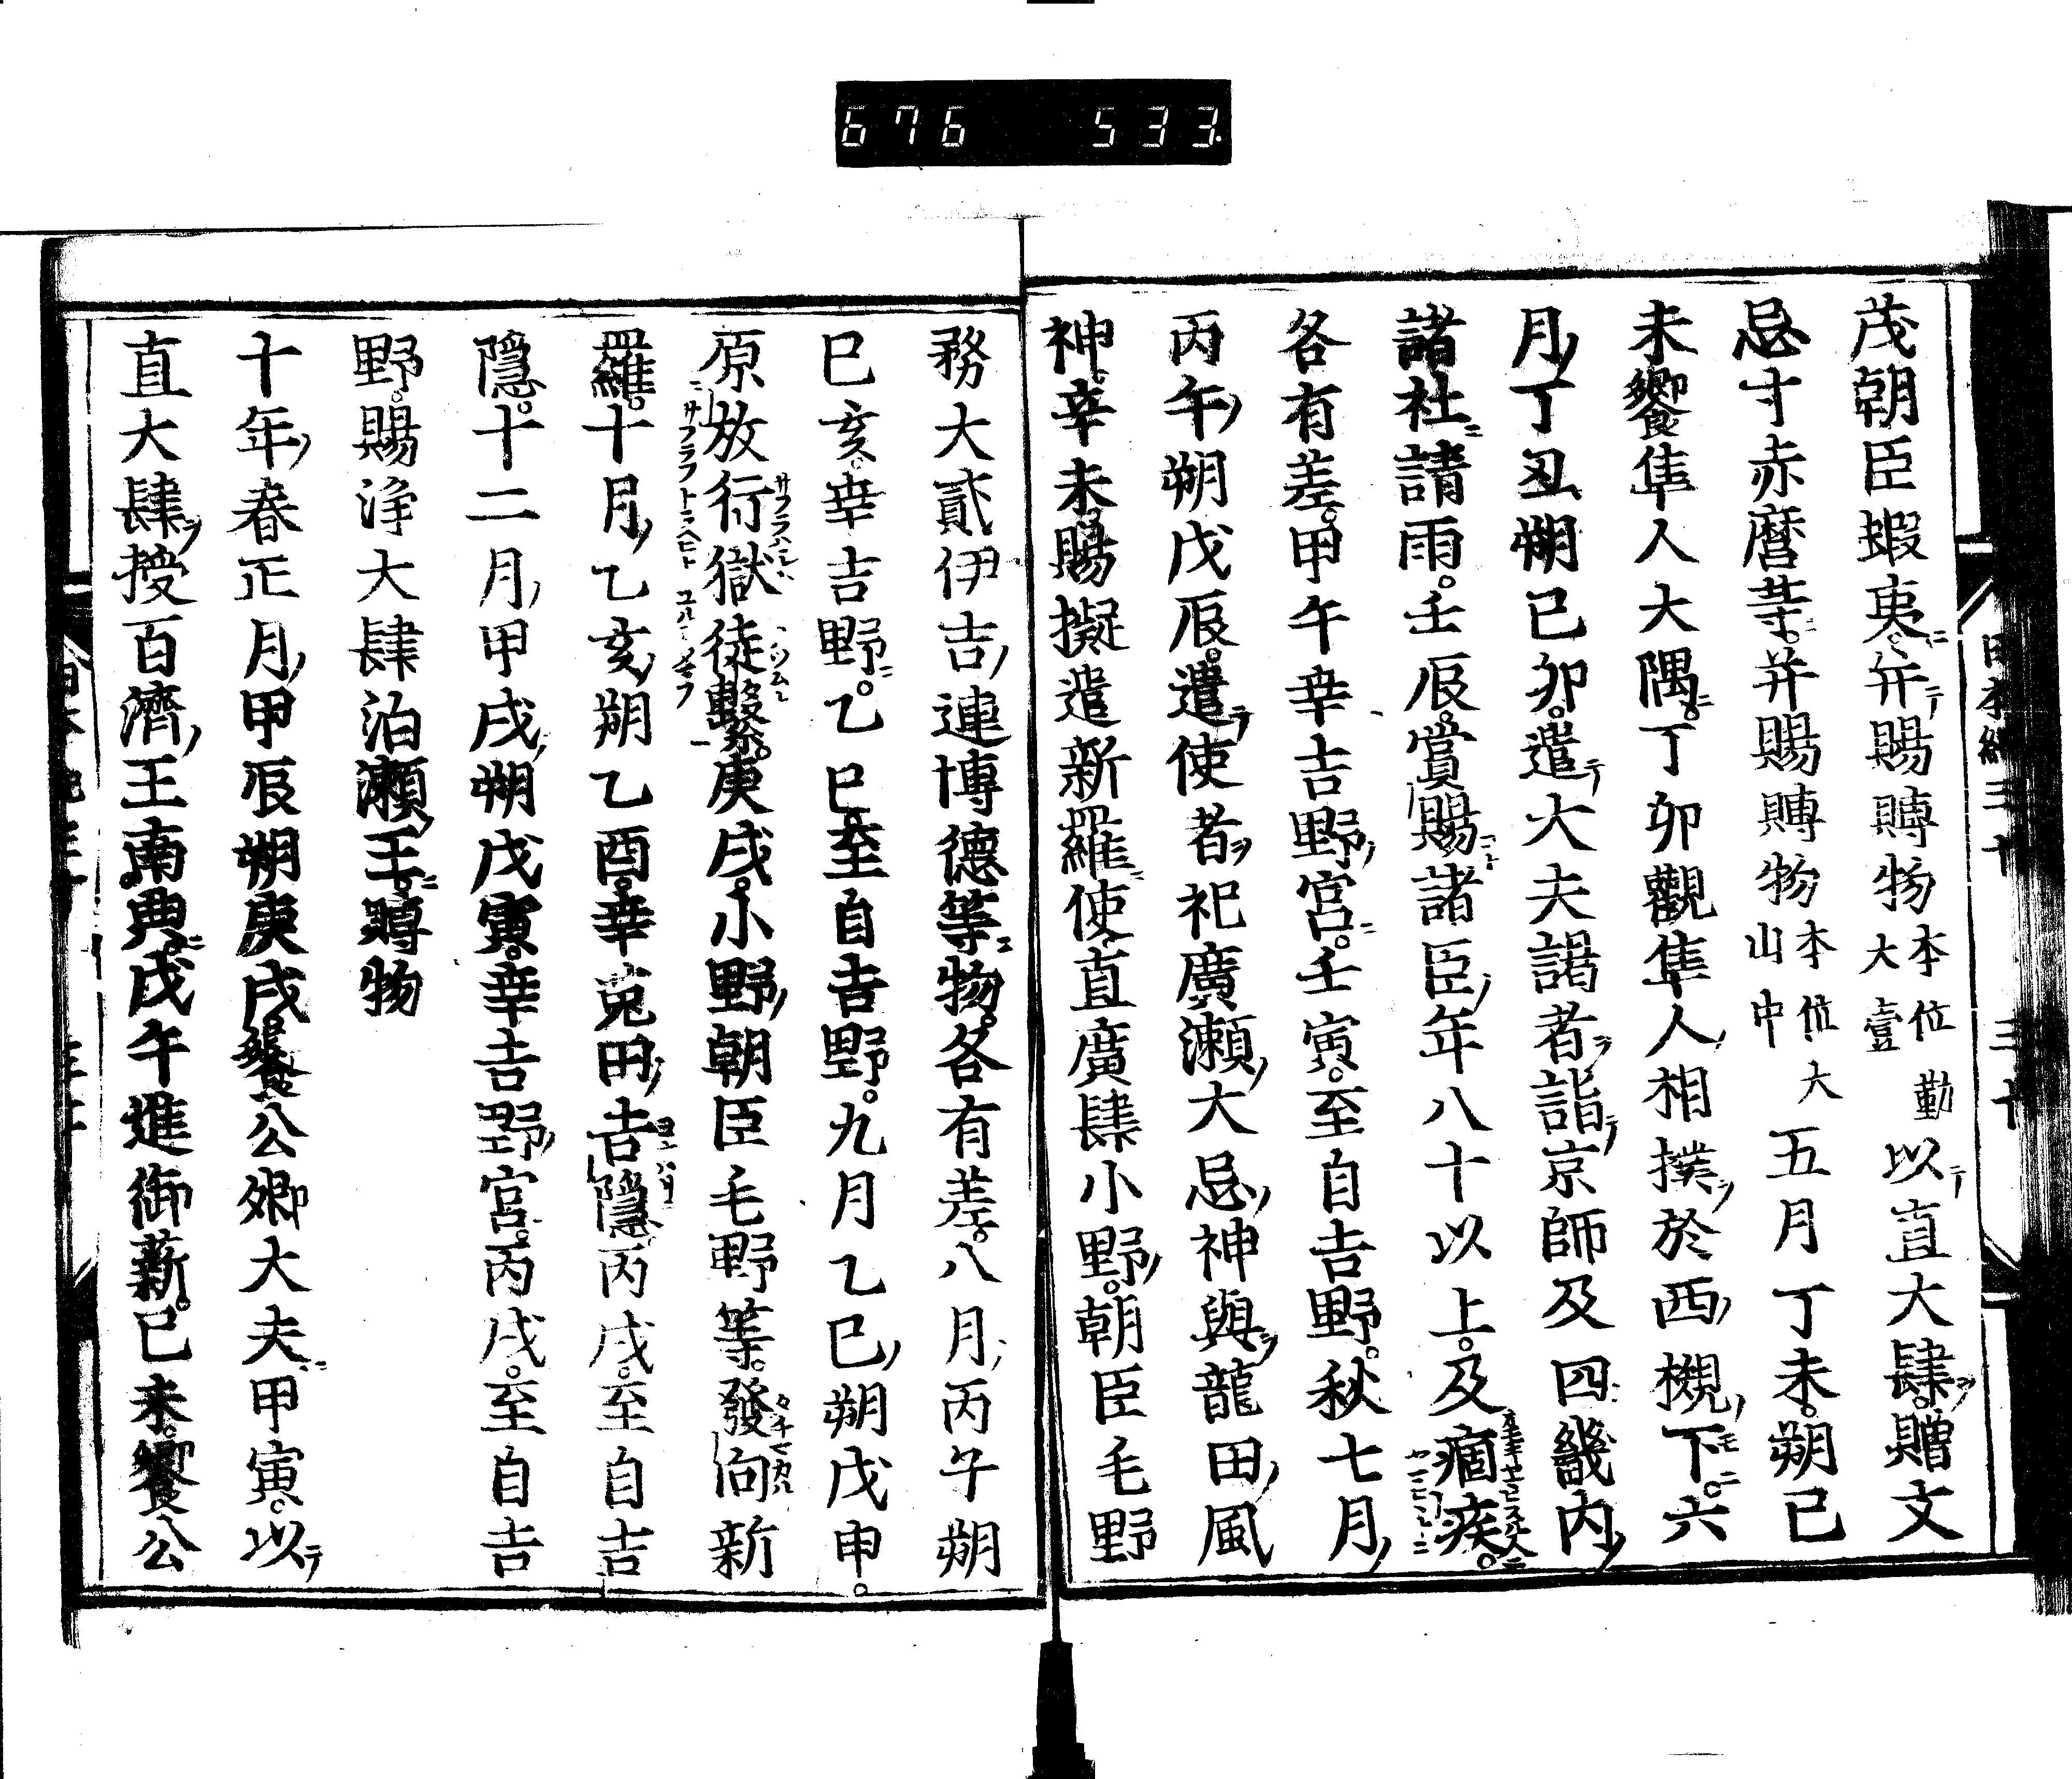 676 533
茂朝臣蝦夷并賜賻物本位勤大壹以直大肆贈文
忌寸赤麿等并賜賻物本位大山中五月丁未朔己
未饗隼人大隅丁卯觀隼人相撲於西槻下六
月丁丑朔己卯遣大夫謁者詣京師及四畿内
諸社請雨壬辰賞賜諸臣年八十以上及痼疾
各有差甲午幸吉野宮壬寅至自吉野秋七月
丙午朔戊辰遣使者祀廣瀬大忌神與龍田風
神辛未賜擬遣新羅使直廣肆小野朝臣毛野
務大貳伊吉連博德等物各有差八月丙午朔
己亥幸吉野乙巳至自吉野九月乙巳朔戊申
原放行獄徒繋庚戌小野朝臣毛野等發向新
羅十月乙亥朔乙酉幸菟田吉隱丙戌至自吉
隱十二月甲戌朔戊寅幸吉野宮丙戌至自吉
野賜浄大肆泊瀬王賻物
十年春正月甲辰朔庚戌饗公卿大夫甲寅以
直大肆授百濟王南典戊午進御薪己未饗公